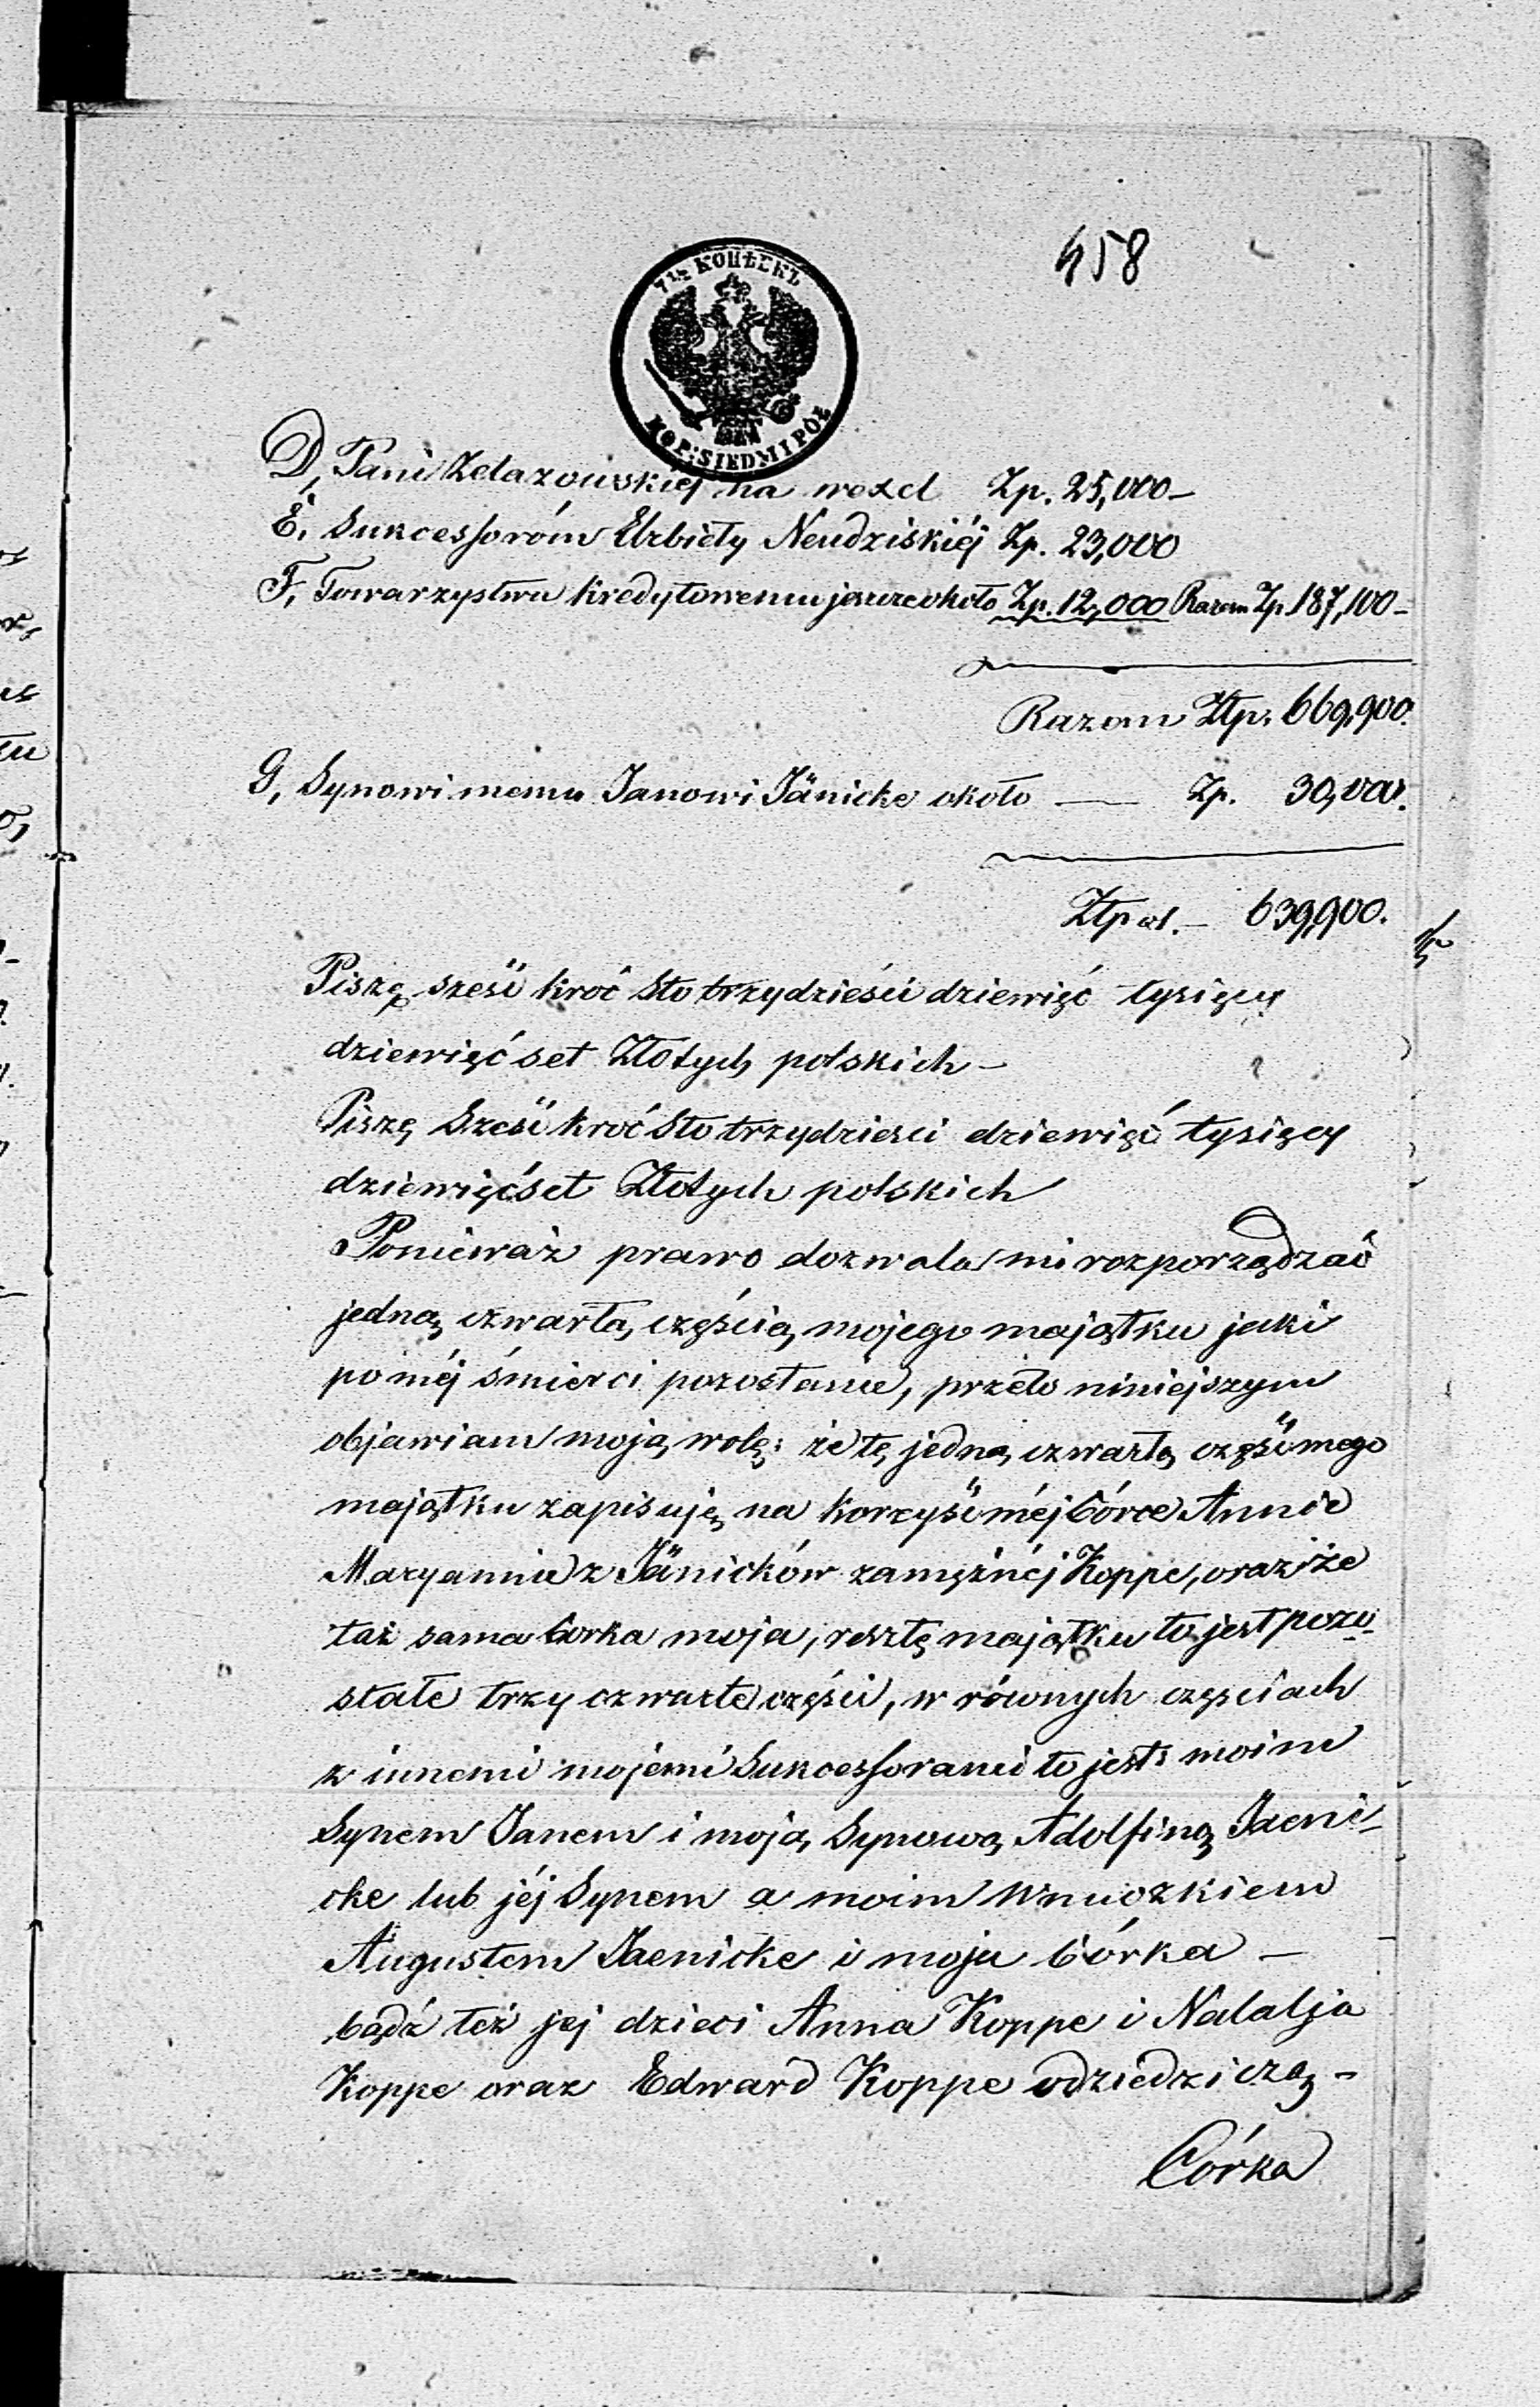 458
7½ КОПѢЕКЪ
KOP: SIEDM I PÓŁ
D, Pani Żelazowskiéj na wexel Zp. 25,000 –
E, Sukcessorom Elzbiety Neudziskiéj Zp. 23,000
F, Towarzystwu kredytowemu jeszcze około Zp. 12,000 Razem Zp 187,100 –
Razem Złp. 669,900.
G, Synowi memu Janowi Jänicke około — Zp. 30,000.
Złpol. – 639,900.
Piszę sześć kroć sto trzydzieści dziewięć tysięcy
dziewięćset Złotych polskich –
Piszę Sześć kroć sto trzydzieści dziewięć tysięcy
dziewięćset Złotych polskich
Ponieważ prawo dozwala mi rozporządzać
jedną czwartą częścią mojego majątku jaki
po méj śmierci pozostanie, przeto niniejszym
objawiam moją wolę: że tę jedną czwartą część mego
majątku zapisuję na korzyść méj Córce Annie
Maryannie z Jänicków zamężnéj Koppe, oraz że
taż sama Corka moja, resztę majątku to jest pozo-
stałe trzy czwarte części, w równych częsciach
z innemi mojemi Sukcessorami to jest: moim
Synem Janem i moją Synową Adolfiną Jaeni-
cke lub jéj Synem a moim Wnuczkiem
Augustem Jaenicke i moja Córka –
bądź też jej dzieci Anna Koppe i Natalja
Koppe oraz Edward Koppe odziedziczą –
Córka